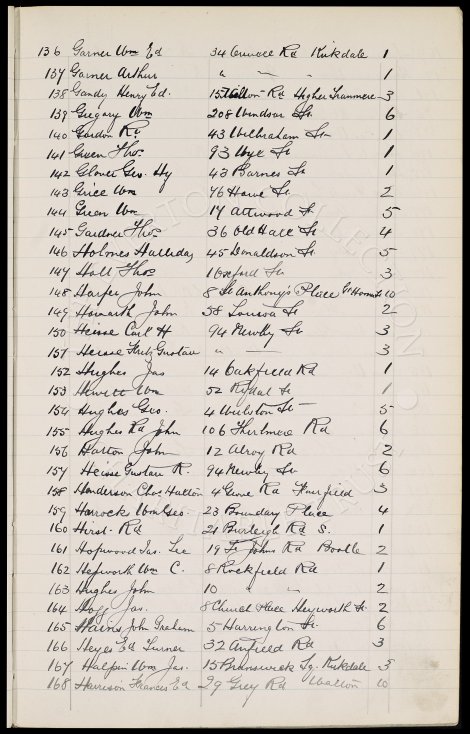 136 Garner Wm Ed 34 Rd Kirkdale 1
137 Garner Arthur " — " 1
138 Gandy Henry Ed. 15 Rd Higher Tranmere 3
139 Gregory Wm 208 Windsor St 6
140 Gordon Rt 43 Wilbraham St 1
141 Green Thos 93 Wye St 1
142 Glover Geo. Hy 43 Barnes St 1
143 Grice Wm 76 Howe St 2
144 Green Wm 17 Attwood St 5
145 Gardner Thos 36 Old Hall St 4
146 Holmes Halliday 45 Donaldson St 5
147 Hall Thos 1 Oxford St 3
148 Harper John 8 St Anthony's Place 10
149 Howarth John 58 Louisa St 2
150 Heisse Carl H 94 Newby St 3
151 Heisse Fritz Gustav " — 3
152 Hughes Jas 14 Oakfield Rd 1
153 Hewitt Wm 52 Rydal St 1
154 Hughes Geo. 4 St 5
155 Hughes Rd John 106 Thirlmere Rd 6
156 Harton John 12 Alroy Rd 2
157 Heisse Gustav R. 94 Newby St 6
158 Henderson Chas 4 Rd Fairfield 3
159 Horrock Wm Geo 23 Boundary Place 4
160 Hirst Rd 21 Burleigh Rd S. 1
161 Hopwood Jas. Lee 19 St Johns Rd Bootle 2
162 Hepworth Wm C. 8 Rockfield Rd 1
163 Hughes John 10 " " 2
164 Jas. 8 Church Place Heyworth St 2
165 Hains John Graham 5 Harrington St 6
166 Heyes Ed Turner 32 Anfield Rd 3
167 Halpin Wm Jas. 15 Brunswick Kirkdale 3
168 Harrison Frances Ed 29 Grey Rd Walton 10